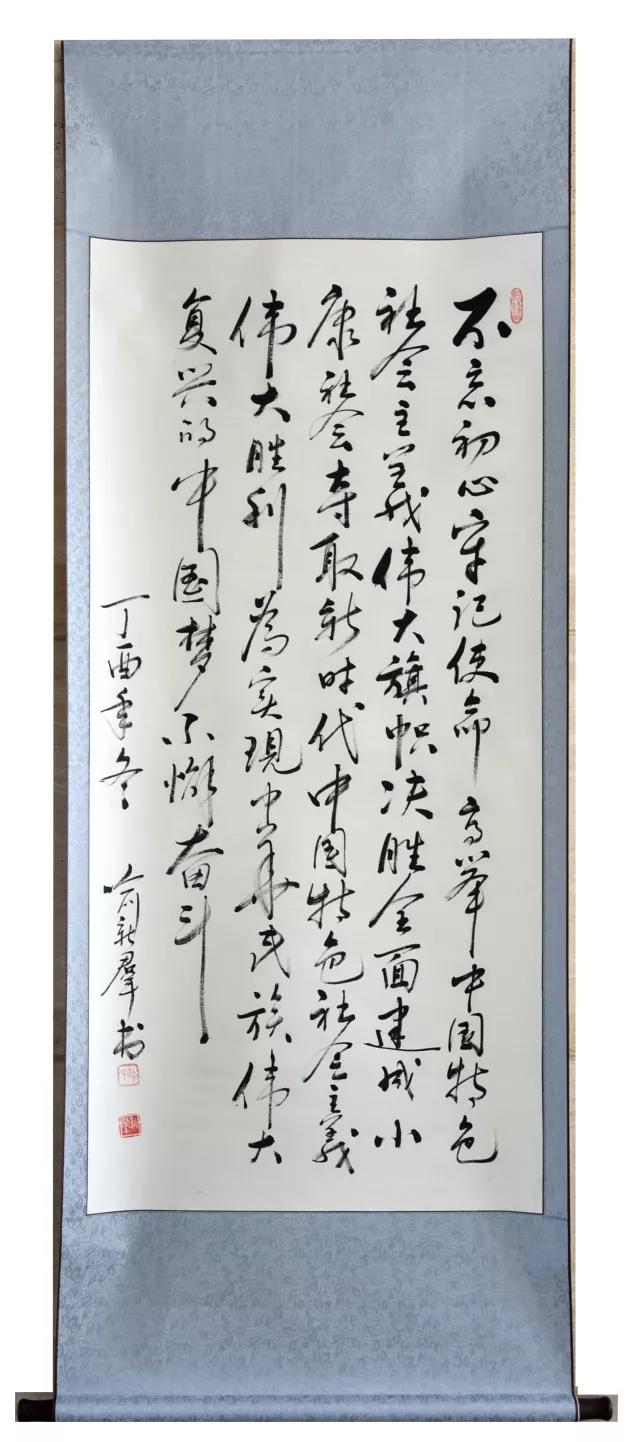 不忘初心牢记使命高举中国特色
社会主义伟大旗帜决胜全面建成小
康社会夺取新时代中国特色社会主義
伟大胜利為实現中华民族伟大
复兴的中国梦不懈奋斗
丁酉年冬 喻新群书